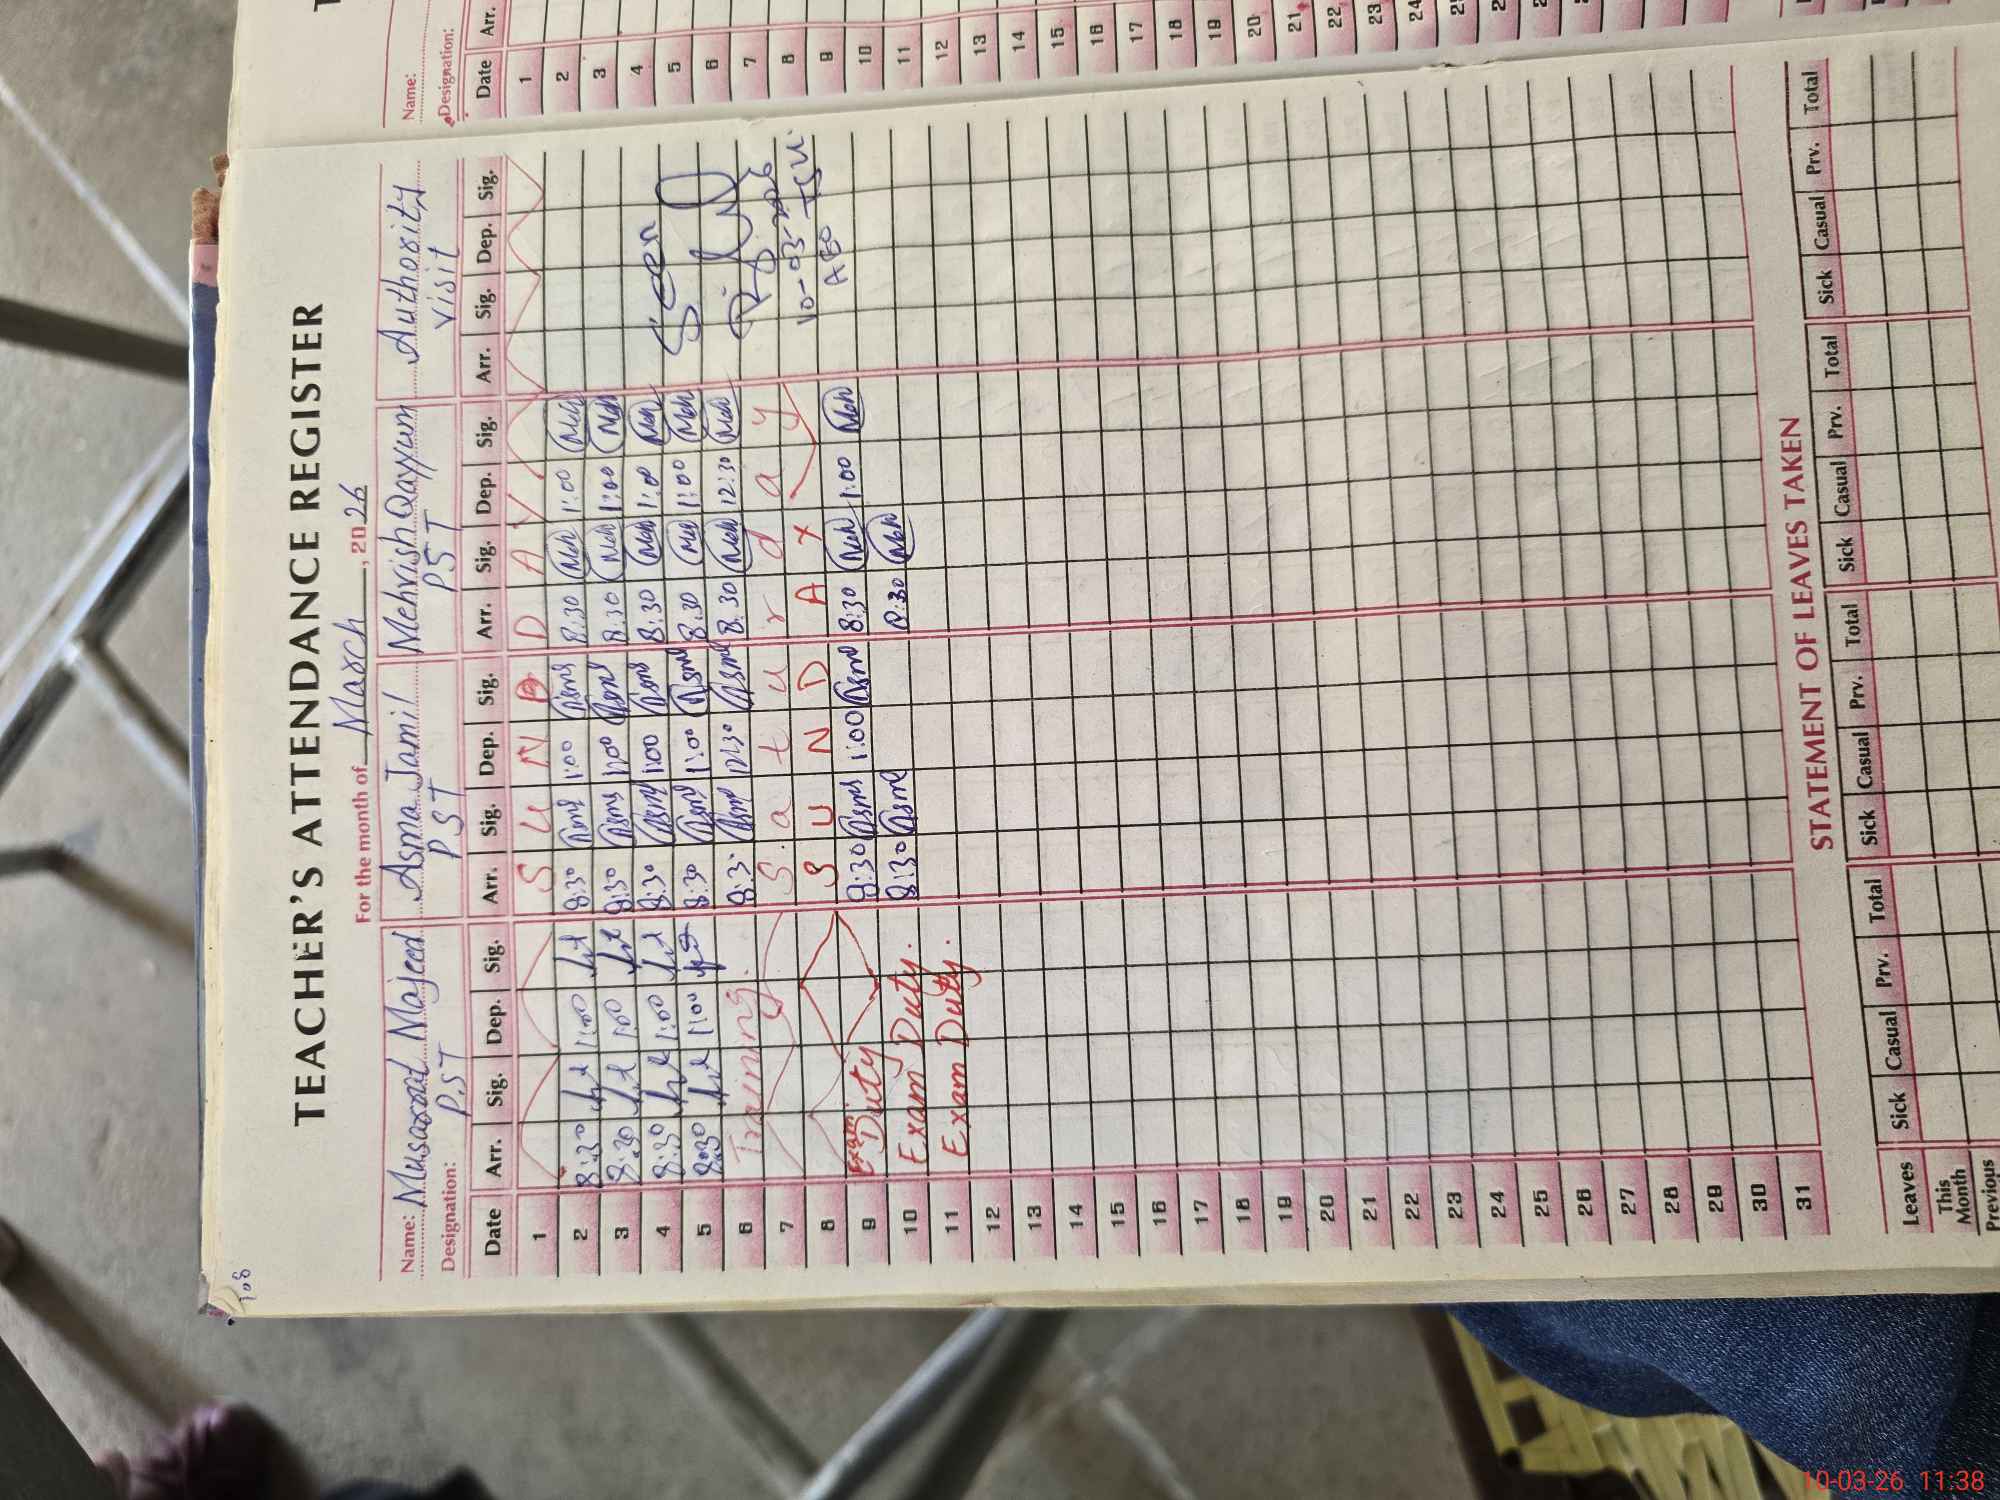 108
TEACHER'S ATTENDANCE REGISTER
For the month of March, 2026
Name: Musarrat Majeed Asma Jamil Mehvish Qayyum Authority
Designation: P.S.T P.S.T P.S.T visit
Date Arr. Sig. Dep. Sig. Arr. Sig. Dep. Sig. Arr. Sig. Dep. Sig. Arr. Sig. Dep. Sig.
1 S U N D A Y
2 8:30 1:00 8:30 Asml 1:00 Asml 8:30 Meh 1:00 Meh
3 8:30 1:00 8:30 Asml 1:00 Asml 8:30 Meh 1:00 Meh
4 8:30 1:00 8:30 Asml 1:00 Asml 8:30 Meh 1:00 Meh Seen
5 8:30 1:00 8:30 Asml 1:00 Asml 8:30 Meh 1:00 Meh
6 Training. 8:3 Asml 12:30 Asml 8:30 Meh 12:30 Meh
7 S a t u r d a y 10-03-2026
8 S U N D A Y AEO
9 Exam Duty 8:30 Asml 1:00 Asml 8:30 Meh 1:00 Meh
10 Exam Duty. 8:30 Asml 8:30 Meh
11 Exam Duty.
12
13
14
15
16
17
18
19
20
21
22
23
24
25
26
27
28
29
30
31
STATEMENT OF LEAVES TAKEN
Leaves Sick Casual Prv. Total Sick Casual Prv. Total Sick Casual Prv. Total Sick Casual Prv. Total
This Month
Previous
Name:
Designation:
Date Arr.
1
2
3
4
5
6
7
8
9
10
11
12
13
14
15
16
17
18
19
20
21
22
23
24
10-03-26 11:38